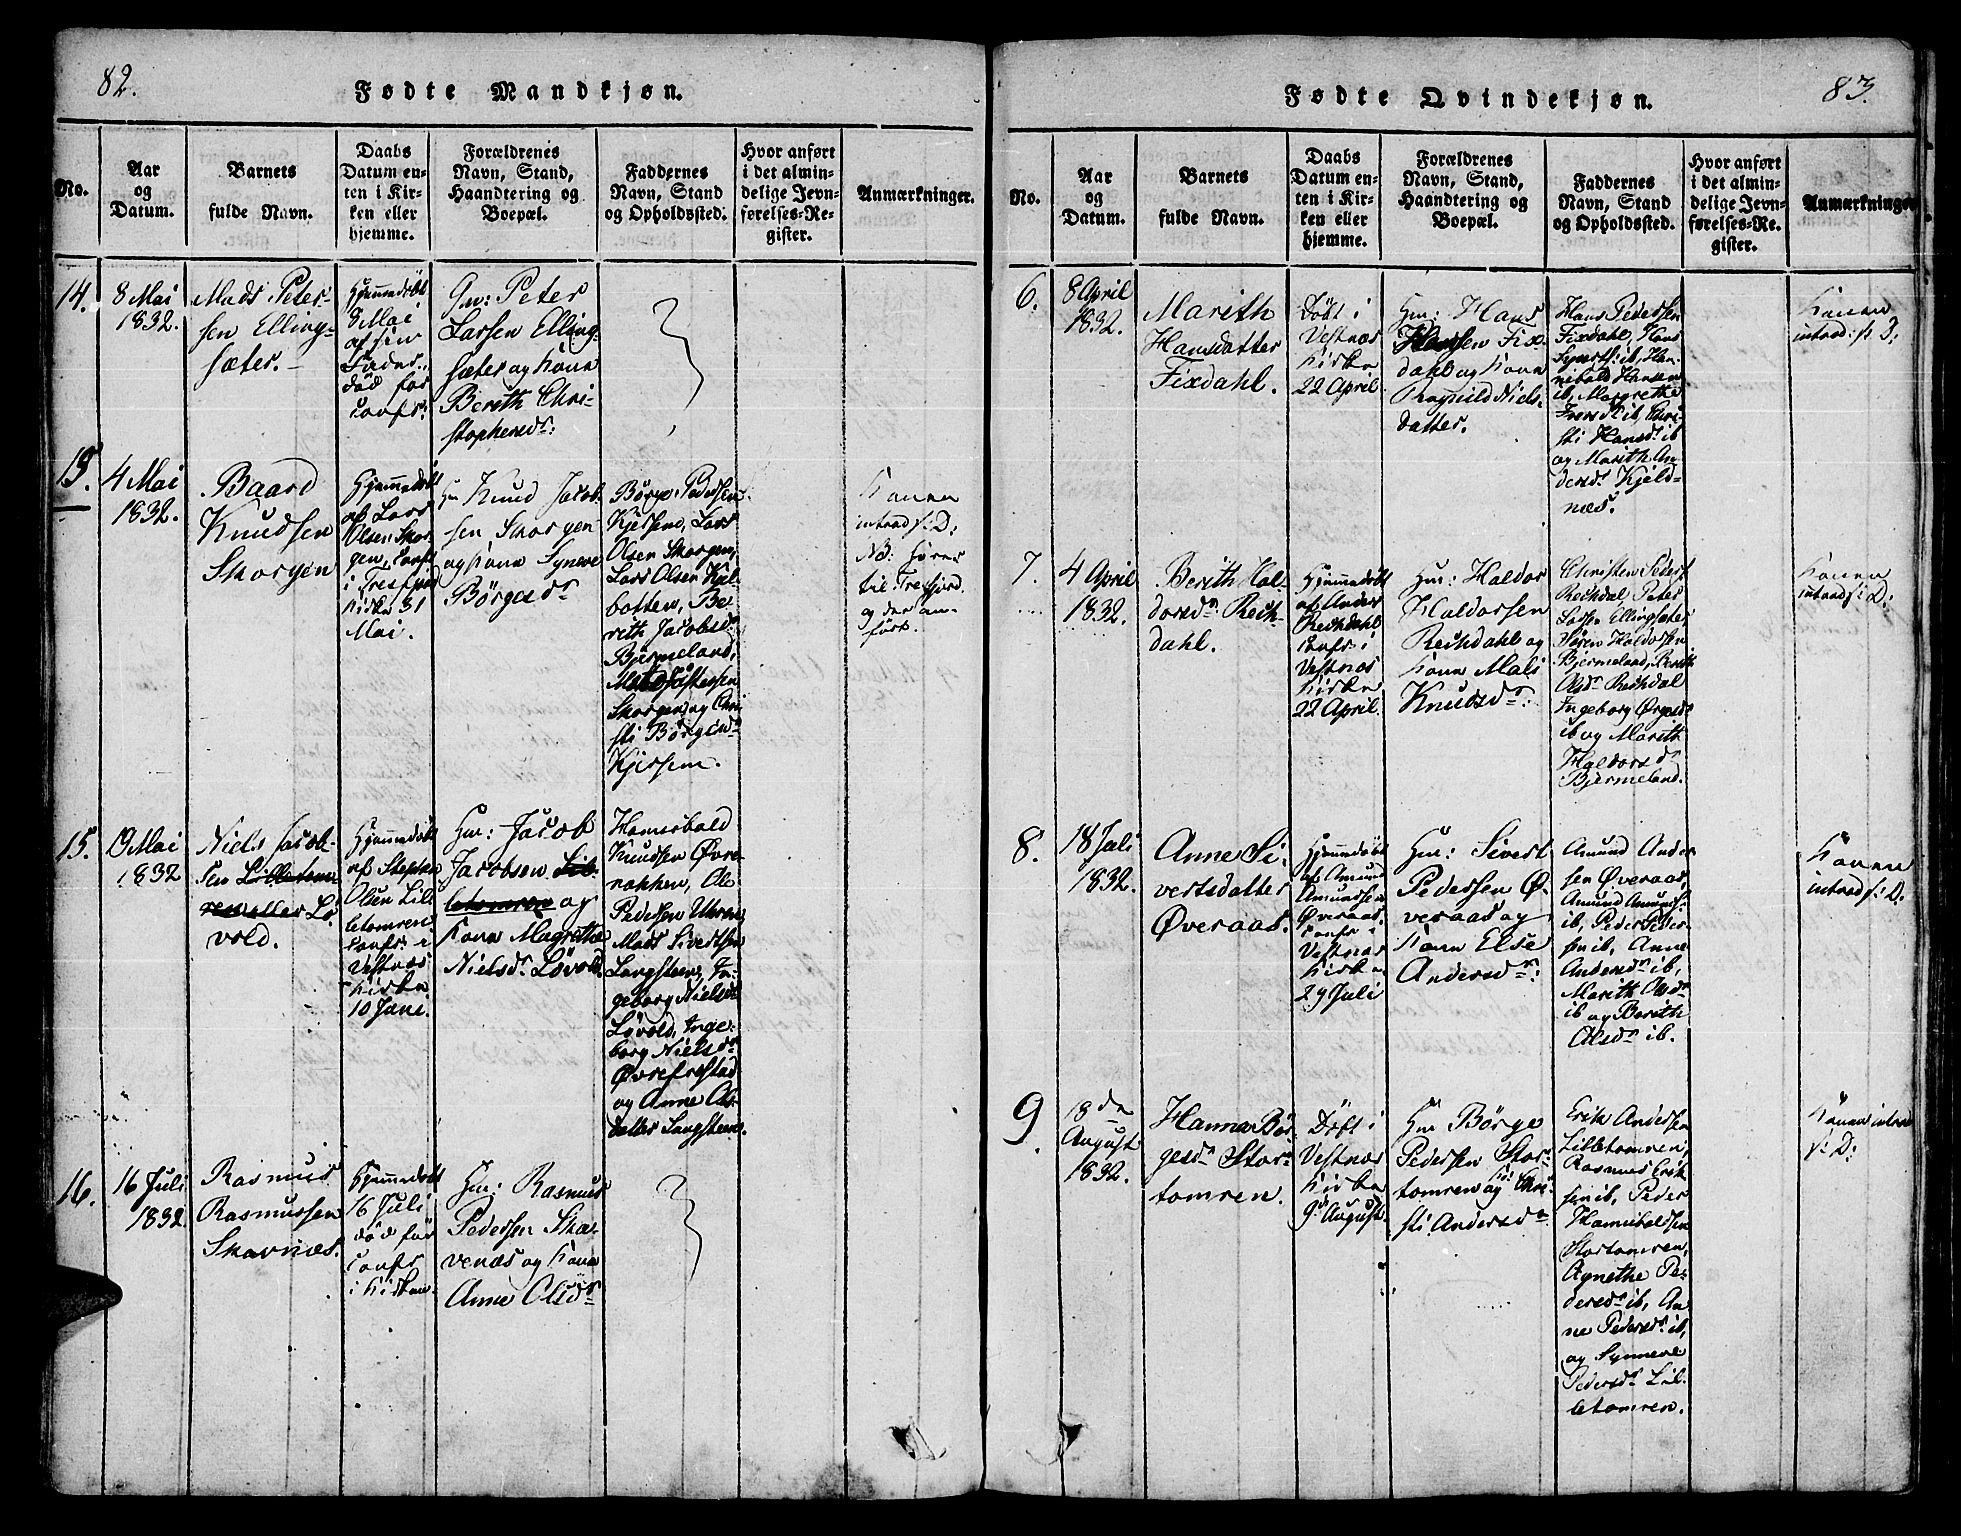 82.
Fødte Mandkjøn.
No.
Aar
og
Datum.
Barnets
fulde Navn.
Daabs
Datum en-
ten i Kir-
ken eller
hjemme.
Forældrenes
Navn, Stand,
Haandtering og
Boepæl.
Faddernes
Navn, Stand
og Opholdssted.
Hvor anført
i det almin-
delige Jevn-
førelses-Re-
gister.
Anmærkninger.
14.
8 Mai
1832.
Mads Peter-
sen Elling-
sæter.
Hjemmedöbt
8 Mai
af sin
Fader,
död før
Confr:
Gm: Peter
Larsen Elling-
sæter og Kone
Berith Chri-
stophersdr:
15.
4 Mai
1832.
Baard
Knudsen
Skorgen
Hjemmedöbt
af Lars
Olsen Skor-
gen, Confr
i Tresfjord
Kirke 31
Mai.
Gm Knud Jacob-
sen Skorgen
og Kone Syneve
Börgesdr
Börge Pedersen
Kjersem, Lars
Olsen Skorgen,
Lars Olsen Kjel-
botten, Be-
reth Jacobsdr
Bjermeland,
Skorgen og Chri-
sti Börgesdr
Kjersem.
Konen
introd s: D:
NB. hører
til Tresfjord
og der an-
ført.
15.
19 Mai
1832
Niels Jacob-
sen Lilletom-
ren eller Lö-
vold.
Hjemmedöbt
af Stephen
Olsen Lil-
letomren.
Confr: i
Vestnæs
Kirke
10 Juni.
Gm: Jacob
Jacobsen Lil-
letomren og
Kone Magrethe
Nielsdr Lövold
Hannibald
Knudsen Øvre-
nakken, Ole
Pedersen Uhren,
Mads Sivertsen
Langsteen, In-
geborg Nielsdr
Lövold, Inge-
borg Nielsdr
Øvrefrostad
og Anne Ols-
datter Langsteen.
16.
16 Juli
1832
Rasmus
Rasmussen
Skavnæs.
Hjemmedöbt
16 Juli
död før
Confr
i Kirken.
Gm: Rasmus
Pedersen Ska-
venæs og Kone
Anne Olsdr
83.
Fødte Qvindekjøn.
No.
Aar
og
Datum.
Barnets
fulde Navn.
Daabs
Datum en-
ten i Kir-
ken eller
hjemme.
Forældrenes
Navn, Stand,
Haandtering og
Boepæl.
Faddernes
Navn, Stand
og Opholdssted.
Hvor anført
i det almin-
delige Jevn-
førelses-Re-
gister.
Anmærkninger
6.
8 April
1832.
Marith
Hansdatter
Fixdahl.
Döbt i
Vestnæs
Kirke
22 April
Gm: Hans
Hansen Fix-
dahl og Kone
Ragnild Niels-
datter.
Hans Pedersen
Fixdahl, Hans
Syverts: ib, Han-
nibald Hansen
ib, Margrethe
Iversdr ib, Chri-
sti Hansdr ib
og Marith An-
dersdr Kjeld-
næs.
Konen
introd: s: D:
7.
4 April
1832.
Berith Hal-
dorsdr Rech-
dahl.
Hjemmedöbt
af Anders
Rechdahl
Confr: i
Vestnæs
Kirke
22 April.
Gm: Haldor
Haldorsen
Rechdahl og
Kone Mali
Knudsdr:
Christen Peders:
Rechdal Peter
Larsen Ellingsæter,
Sören Haldorsen
Bjermeland, Berith
Olsdr Rechdal
Ingeborg Ørgesdr
ib og Marith
Haldorsdr
Bjermeland.
Konen
introd s: D:
8.
18 Juli
1832.
Anne Si-
vertsdatter
Øveraas.
Hjemmedöbt
af Amund
Amundsen
Øveraas,
Confr i
Vestnæs
Kirke
29 Juli
Gm: Sivert
Pedersen Ø-
veraas og
Kone Else
Andersdr:
Amund Ander-
sen Øveraas,
Amund Amunds:
ib, Peder Peder-
sen ib, Anne
Andersdr ib,
Marith Olsdr
ib og Berith
Olsdr ib.
Konen
introd s: D.
9.
18de
August
1832.
Hanna Bör-
gesdr Stor-
tomren.
Döbt i
Vestnæs
Kirke
9d August
Gm Börge
Pedersen Stor-
tomren og K: Chri-
sti Andersdr
Erik Andersen
Lilletomren,
Rasmus Erik-
sen ib, Peder
Hannibaldsen
Stortomren,
Agnethe Pe-
dersdr ib, An-
ne Pedersdr ib,
og Synneve
Pedersdr Lil-
letomren.
Konen introd
s: D: